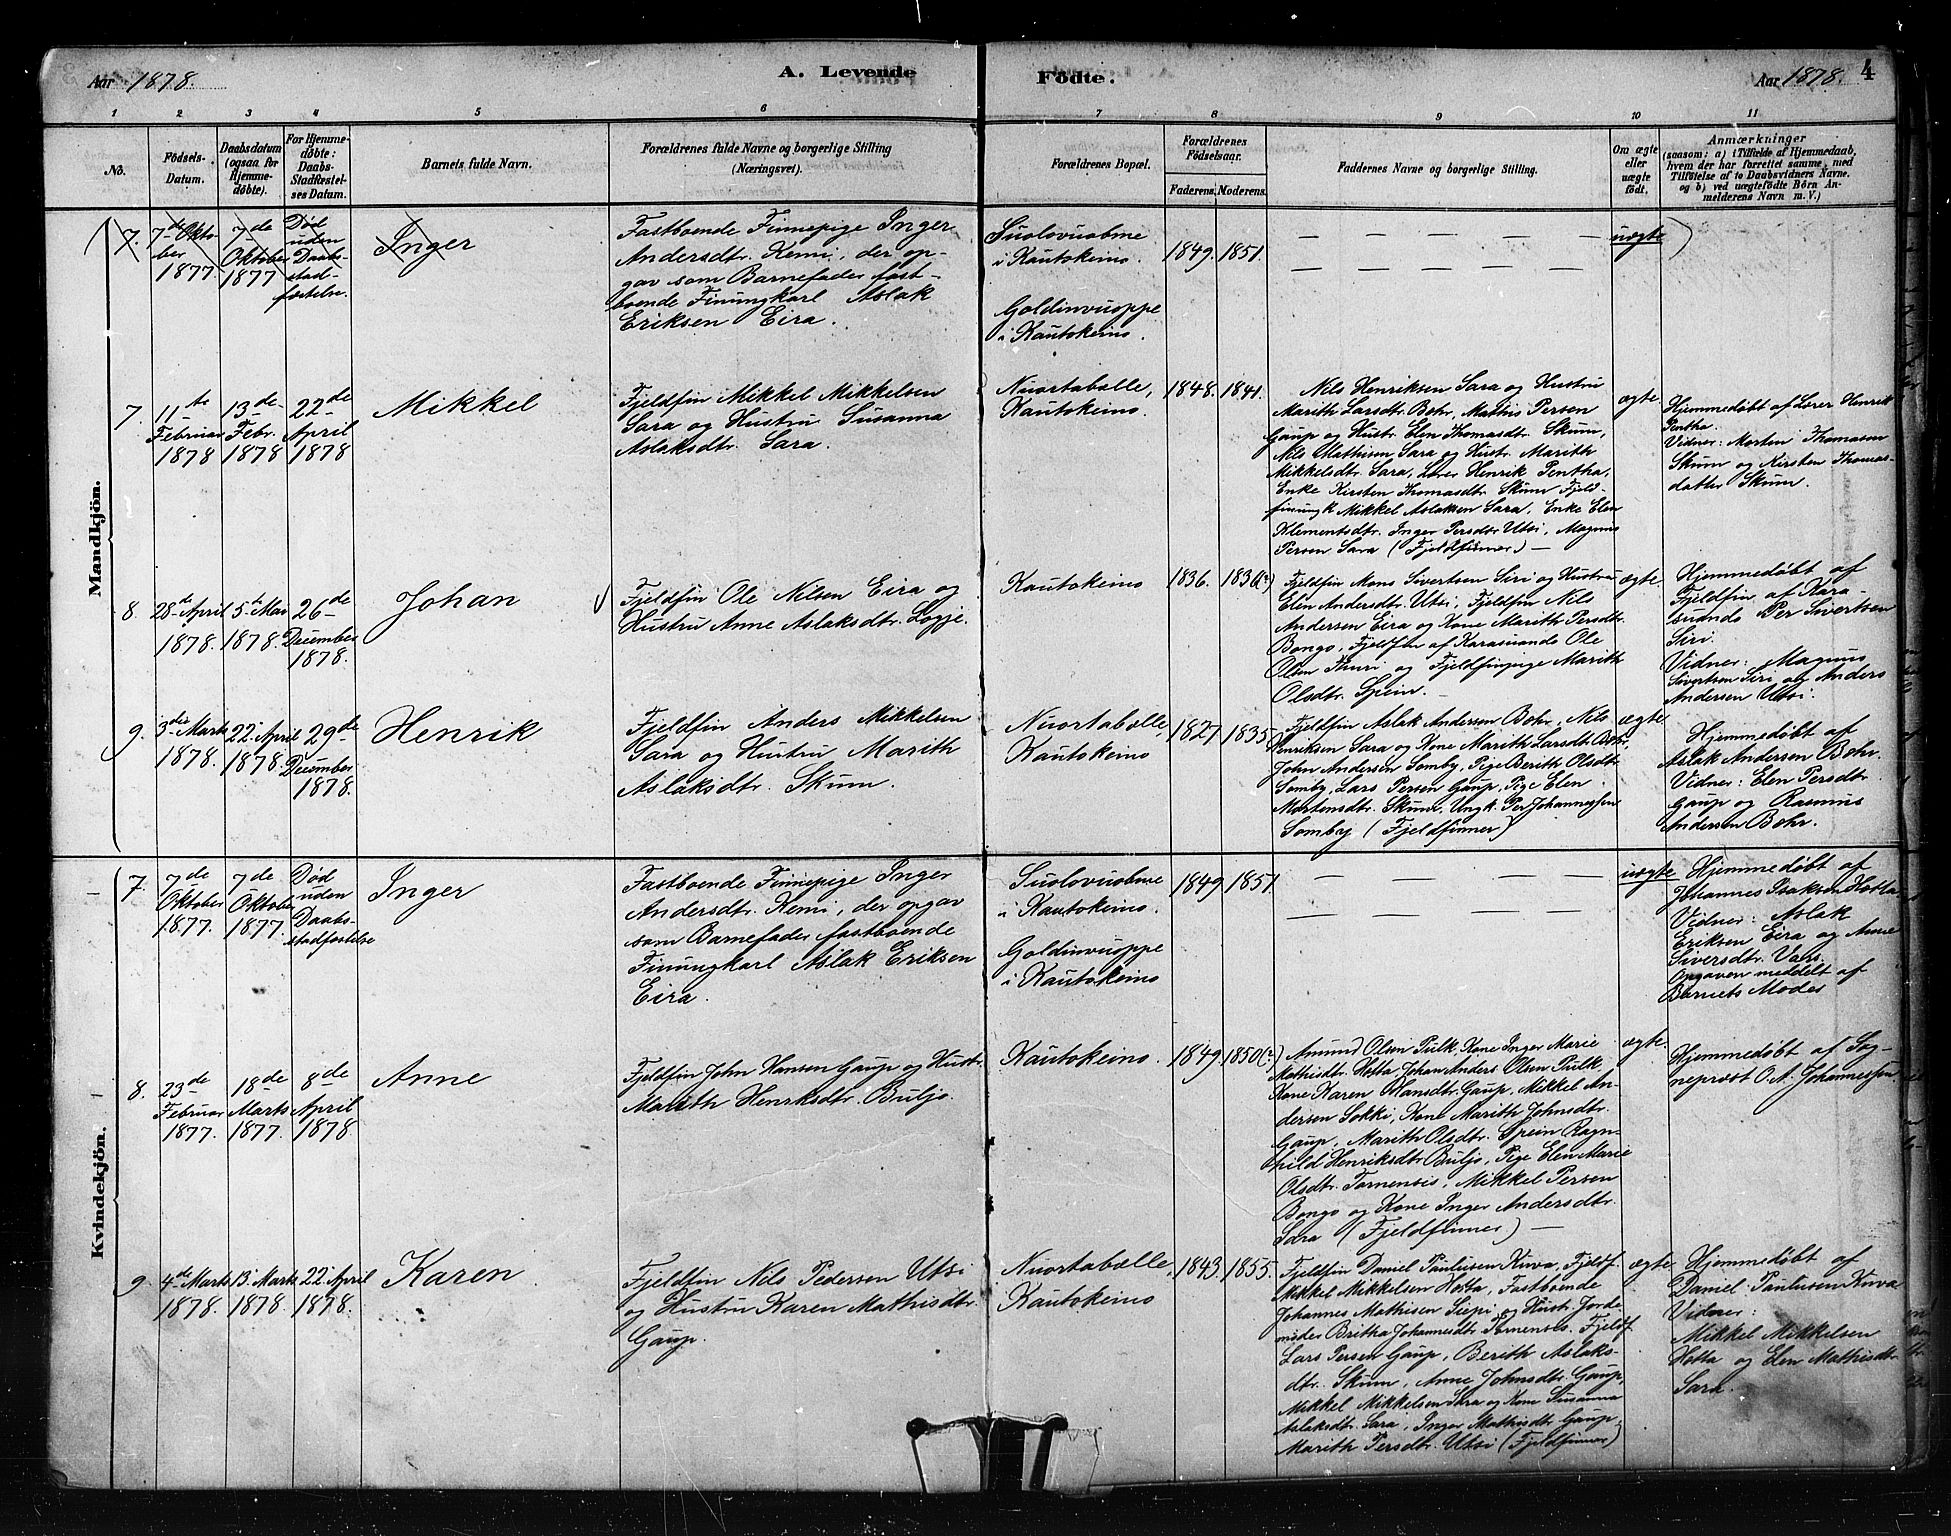 Aar 1878.
A. Levende
Fødte.
Aar 1878.
4
1 2 3 4 5 6 7 8 9 10 11
No.
Fødsels-
Datum.
Daabsdatum
(ogsaa for
Hjemme-
døbte).
For Hjemme-
døbte:
Daabs-
Stadfæstel-
ses Datum.
Barnets fulde Navn.
Forældrenes fulde Navne og borgerlige Stilling
(Næringsvei).
Forældrenes Bopæl.
Forældrenes
Fødselsaar.
Faderens. Moderens.
Faddernes Navne og borgerlige Stilling.
Om ægte
eller
uægte
født.
Anmærkninger
(saasom: a) i Tilfælde af Hjemmedaab,
hvem der har forrettet samme, med
Tilføielse af to Daabsvidners Navne.
og b) ved uægtefødte Børn An-
melderens Navn m. V.)
Mandkjön.
7.
7de Okto-
ber
1877
7de
Oktober
1877
Død
uden
Daabs-
stad-
fæstelse.
Inger
Fastboende Finnepige Inger
Andersdtr. Kemi, der op-
gav som Barnefader fast-
boende Finungkarl Aslak
Eriksen Eira.
Suolovuobme
i Kautokeino.
Goldinvuoppe
i Kautokeino.
1849. 1851.
uægte
7.
11te
Februar
1878
13de
Febr.
1878
22de
April
1878
Mikkel
Fjeldfin Mikkel Mikkelsen
Sara og Hustru Susanna
Aslaksdtr. Sara.
Nuortabælle,
Kautokeino.
1848. 1841.
Nils Henriksen Sara og Hustru
Marith Larsdtr. Bohr, Mathis Persen
Gaup og Hustr. Elen Thomasdtr. Skum,
Nils Mathisen Sara og Hustr. Marith
Mikkelsdtr. Sara, Lærer Henrik Pentha,
Enke Kirsten Thomasdtr. Skum Fjeld-
finungk Mikkel Aslaksen Sara, Enke Elen
Klementsdtr. Inger Persdtr. Utsi, Magnus
Persen Sara (Fjeldfinner) —
ægte
Hjemmedøbt af Lærer Henrik
Pentha.
Vidner: Morten Thomasen
Skum og Kirsten Thomas-
datter Skum.
8.
28de April
1878.
5te Mai
1878.
26de
December
1878.
Johan
Fjeldfin Ole Nilsen Eira og
Hustru Anne Aslaksdtr. Logje.
Kautokeino
1836. 1836(?)
Fjeldfin Mons Sivertsen Siri og Hustru
Elen Andersdtr. Utsi, Fjeldfin Nils
Andersen Eira og Kone Marith Persdtr.
Bongo, Fjeldfin af Karasuando Ole
Olsen Thuri og Fjeldfinpige Marith
Olsdtr. Spein. —
ægte
Hjemmedøbt af
Fjeldfin af Kara-
suando Per Sivertsen
Siri.
Vidner: Magnus
Sivertsen Siri og Anders
Andersen Utsi.
9.
3die Marts
1878.
22. April
1878.
29de
December
1878.
Henrik
Fjeldfin Anders Mikkelsen
Sara og Hustru Marith
Aslaksdtr. Skum.
Nuortabælle,
Kautokeino
1827 1835
Fjeldfin Aslak Andersen Bohr, Nils
Henriksen Sara og Kone Marith Larsdtr. Bohr,
John Andersen Somby, Pige Berith Olsdtr.
Somby, Lars Persen Gaup, Pige Elen
Mortensdtr. Skum, Ungk. Per Johannessen
Somby (Fjeldfinner)
ægte
Hjemmedøbt af
Aslak Andersen Bohr.
Vidner: Elen Persdtr.
Gaup og Rasmus
Andersen Bohr.
Kvindekjön.
7.
7de
Oktober
1877.
7de
Oktober
1877.
Død
uden
Daabs-
stadfæstelse
Inger
Fastboende Finnepige Inger
Andersdtr. Kemi, der opgav
som Barnefader fastboende
Finungkarl Aslak Eriksen
Eira.
Suolovuobme
i Kautokeino.
Goldinvuoppe
i Kautokeino
1849. 1851
uægte
Hjemmedøbt af
Johannes Isaksen Hætta
Vidner: Aslak
Eriksen Eira og Anne
Siversdtr. Vars.
Opgaven meddelt af
Barnets Moder
8.
23de
Februar
1877.
18de
Marts
1877.
8de
April
1878
Anne
Fjeldfin John Hansen Gaup og Hustr.
Marith Henriksdtr. Buljo.
Kautokeino.
1849. 1850(?)
Amund Olsen Pulk, Kone Inger Marie
Mathisdtr. Hætta, Johan Anders Olsen Pulk,
Kone Karen Hansdtr. Gaup, Mikkel An-
dersen Sokki, Kone Marith Johnsdtr.
Gaup, Marith Olsdtr. Spein Ragn-
hild Henriksdtr. Buljo, Pige Elen Marie
Olsdtr. Tornensis, Mikkel Persen
Bongo og Kone Inger Andersdtr.
Sara (Fjeldfinner) —
ægte.
Hjemmedøbt af Sog-
neprovst O. A. Johannessen.
9.
4de Marts
1878.
13. Marts
1878.
22. April
1878.
Karen
Fjeldfin Nils Pedersen Utsi
og Hustru Karen Mathisdtr.
Gaup.
Nuortabælle,
Kautokeino
1843. 1855.
Fjeldfin Daniel Paulusen Kuva, Fjeldf.
Mikkel Mikkelsen Hætta, Fastboende
Johannes Mathisen Siepi og Hustr. Jorde-
moder Britha Johannesdtr. Tornensis. Fjeldf.
Lars Persen Gaup, Berith Aslaks-
dtr. Skum, Anne Johnsdtr. Gaup,
Mikkel Mikkelsen Sara og Kone Susanna
Aslaksdtr. Sara, Inger Mathisdtr. Gaup,
Marith Persdtr. Utsi (Fjeldfinner)
ægte
Hjemmedøbt af
Daniel Paulusen Kuva
Vidner:
Mikkel Mikkelsen
Hætta og Elen Mathisdtr.
Sara.